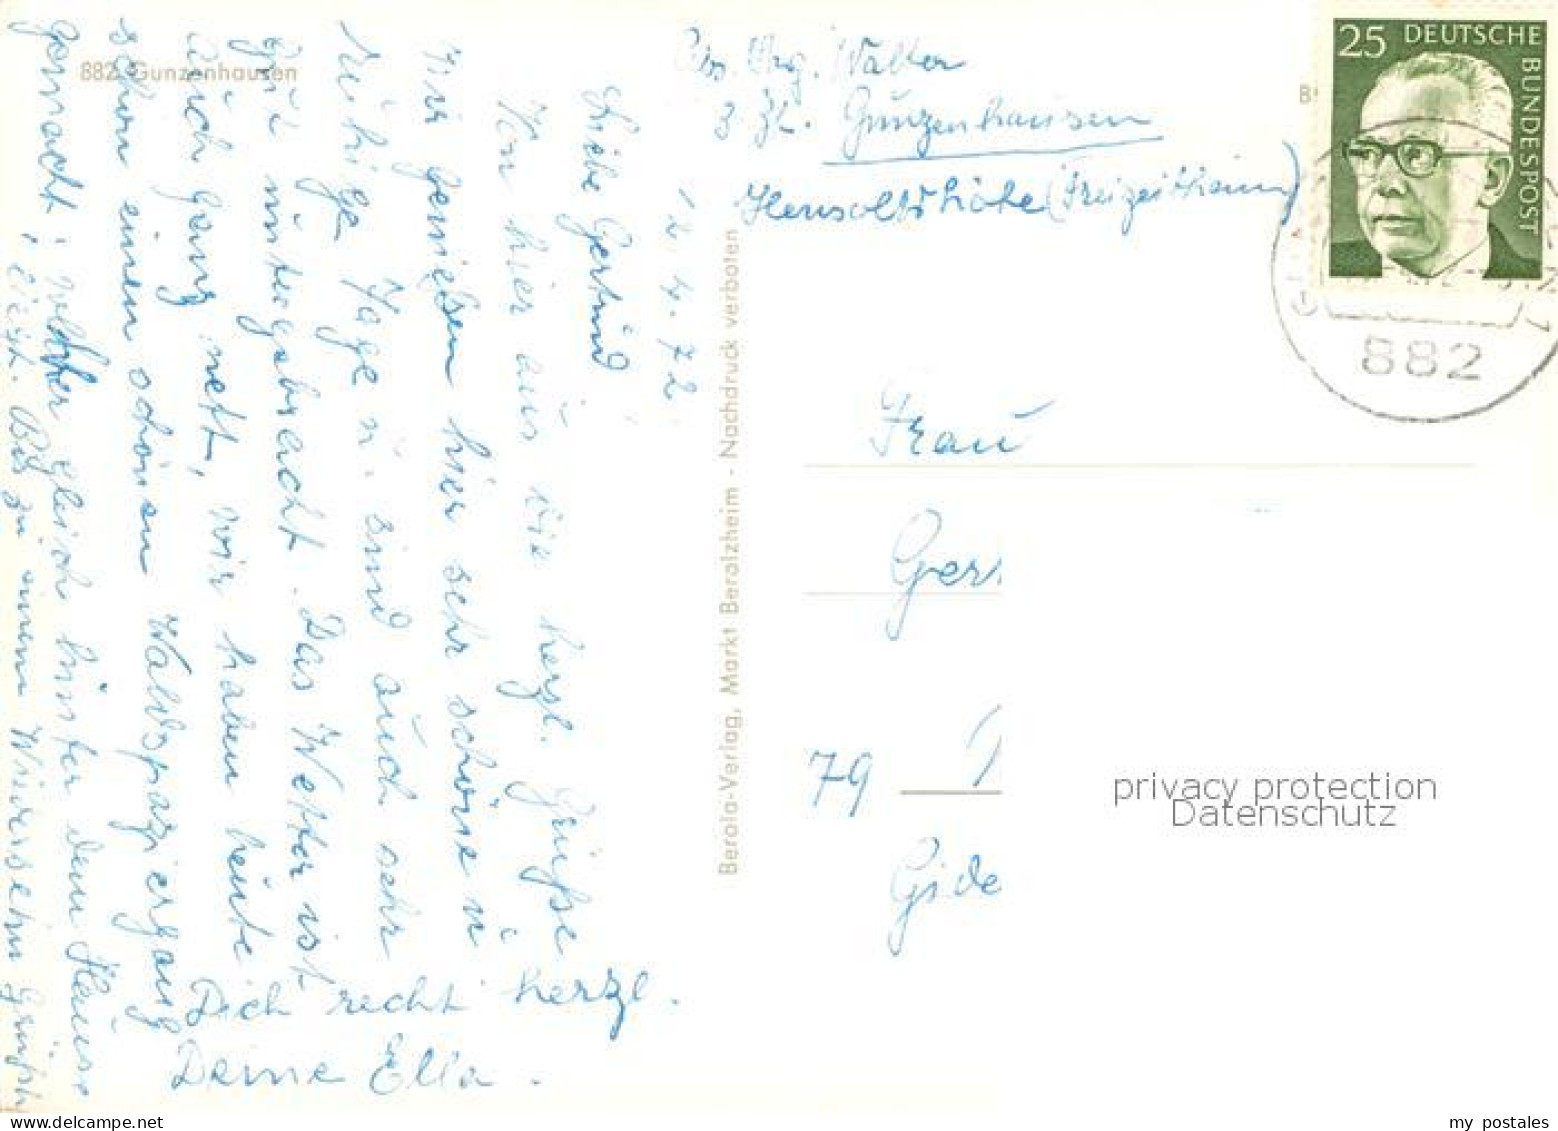 882 Gunzenhausen
Walter
z. Zt. Gunzenhausen
Hensoltshöhe (Freizeitheim)
12.4.72
Liebe Gertrud
Von hier aus Dir herzl. Grüße
Wir genießen hier sehr schöne u.
ruhige Tage u. sind auch sehr
gut untergebracht. Das Wetter ist
auch ganz nett, wir haben heute
schon einen schönen Waldspaziergang
gemacht, welcher gleich hinter dem Hause
liegt. Bis zu einem Wiedersehn grüßt
Dich recht herzl.
Deine Ella.
Berola-Verlag, Markt Berolzheim - Nachdruck verboten
25 DEUTSCHE
BUNDESPOST
882
Frau
Ger
79
Gide
privacy protection
Datenschutz
my postales